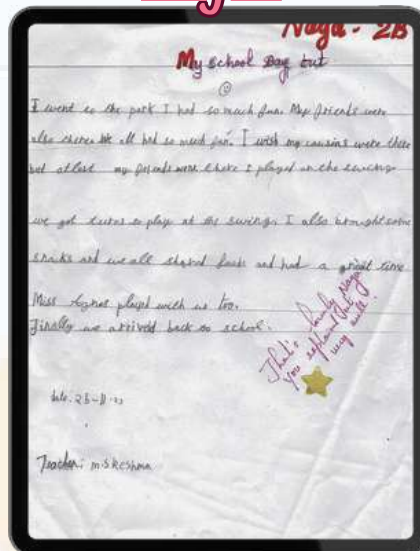 Naga - 2B
My school Day out
I went to the park I had so much fun. My friends were
also there. We all had so much fun. I wish my cousins were there
but atlest my friends were there I played on the swings
we got turns to play at the swing. I also brought some
snaks and we all shared foods and had a great time.
Miss Agnes played with us too.
Finally we arrived back to school.
That's lovely Naga
You explained that
very well!
date. 28-11-23
Teacher: MS Reshma